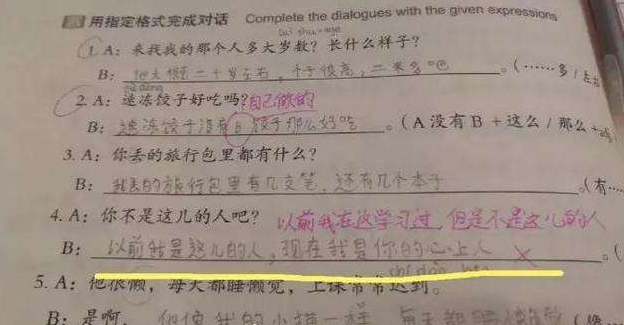 用指定格式完成对话 Complete the dialogues with the given expressions
1. A：来找我的那个人多大岁数？长什么样子？
B：他大概二十岁左右，个子很高，二米多吧。（……多/左右
2. A：速冻饺子好吃吗？自己做的
B：速冻饺子没有 饺子那么好吃。（A 没有 B + 这么 / 那么 +
3. A：你丢的旅行包里都有什么？
B：我丢的旅行包里有几支笔，还有几个本子。（有……
4. A：你不是这儿的人吧？ 以前我在这学习过，但是不是这儿的人
B：以前我是这儿的人，现在我是你的心上人。（
5. A：他很懒，每天都睡懒觉，上课常常迟到。
B：是啊，他像我的小猫一样，每天都睡懒觉（像